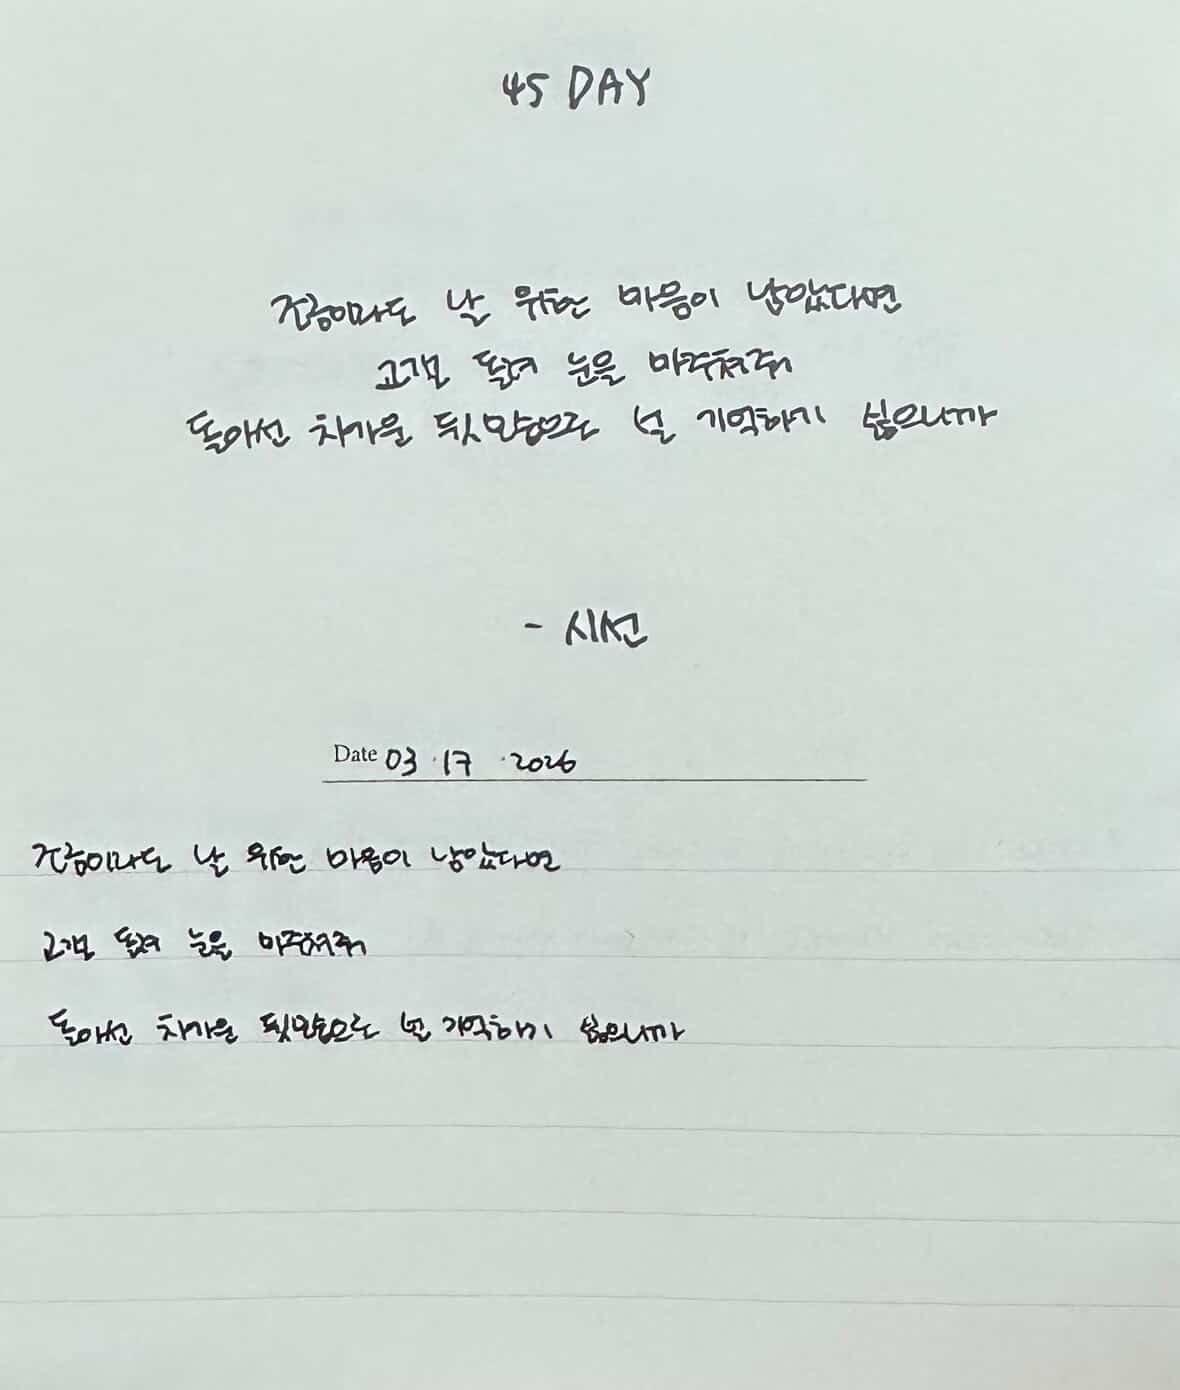 45 DAY
조금이라도 날 위한 마음이 남았다면
고갤 돌려 눈을 마주쳐줘
돌아선 차가운 뒷모습으로 널 기억하기 싫으니까
- 시선
Date 03 . 17 . 2026
조금이라도 날 위한 마음이 남았다면
고갤 돌려 눈을 마주쳐줘
돌아선 차가운 뒷모습으로 널 기억하기 싫으니까